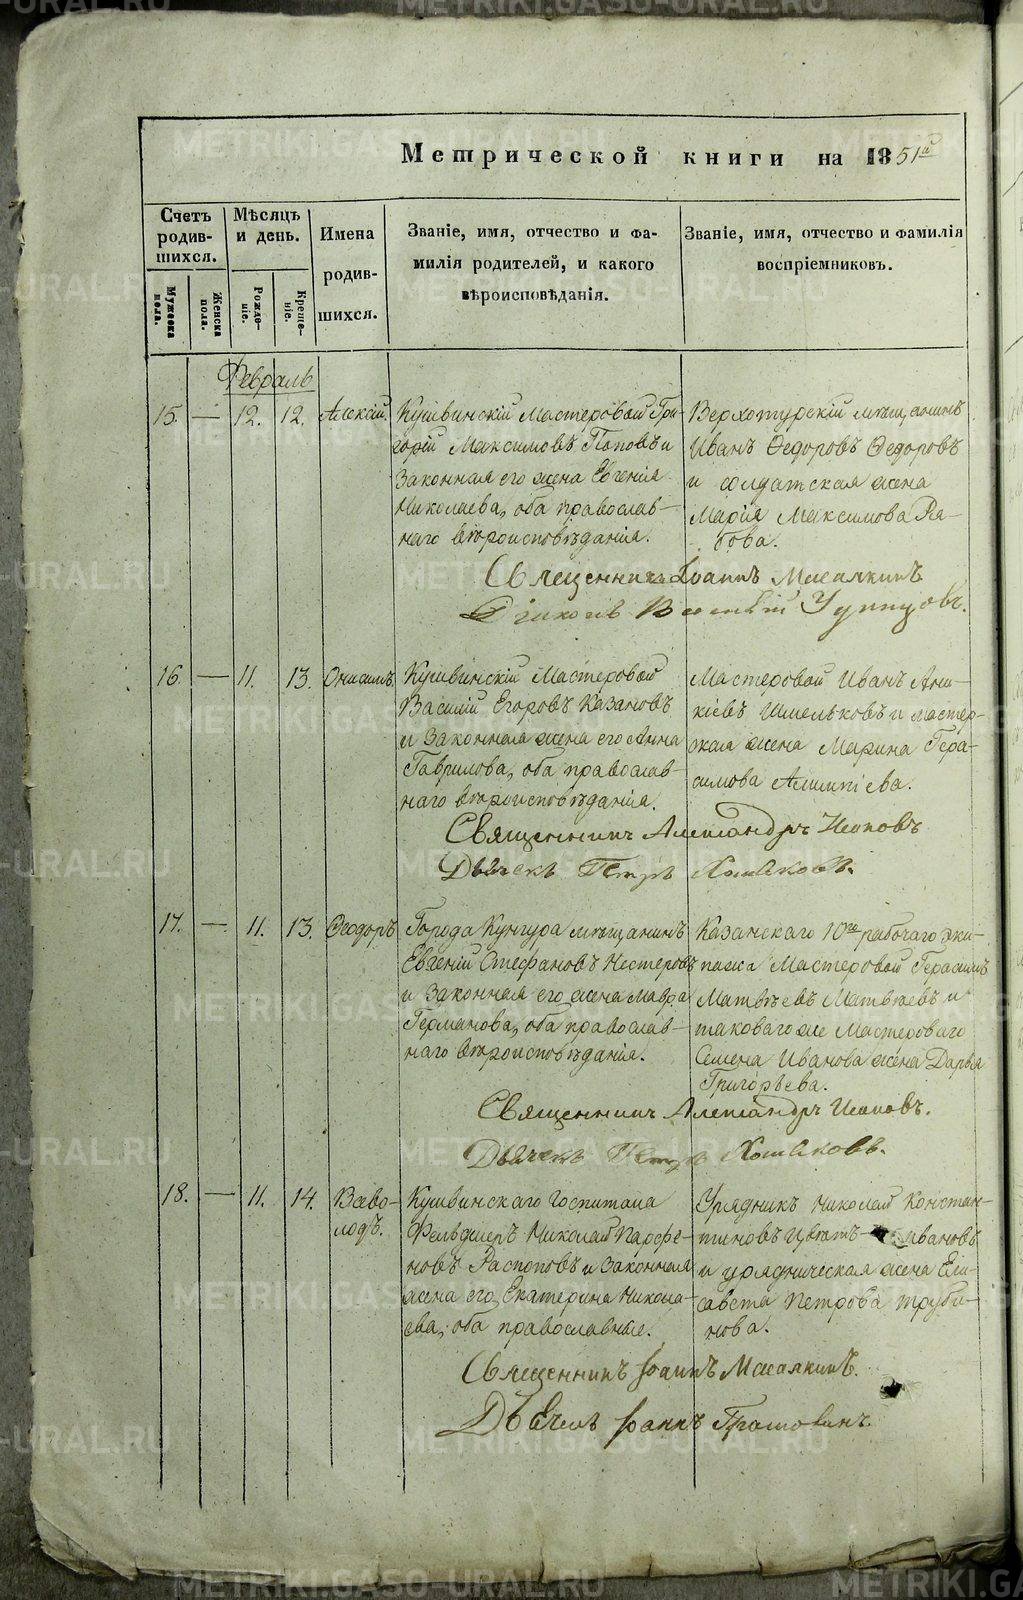 Метрической книги на 1851й
Счетъ родив-шихся.
Мужеска пола.
Женска пола.
Мѣсяцъ и день.
Рожде-ніе.
Креще-ніе.
Имена родив-шихся.
Званіе, имя, отчество и фа-
милія родителей, и какого
вѣроисповѣданія.
Званіе, имя, отчество и фамилія
воспріемниковъ.
Февраль
15. — 12. 12. Алексій.
Кушвинскій мастеровой Гри-
горій Максимовъ Поповъ и
законная его жена Евгенія
Николаева, оба православ-
наго вѣроисповѣданія.
Верхотурскій мѣщанинъ
Иванъ Ѳедоровъ Ѳедоровъ
и солдатская жена
Марія Максимова Ря-
бова.
Священникъ Іоаннъ
Діаконъ Василій
16. — 11. 13. Онисимъ.
Кушвинскій Мастеровой
Василій Егоровъ Казановъ
и законная жена его Анна
Гаврилова, оба православ-
наго вѣроисповѣданія.
Мастеровой Иванъ Ани-
кіевъ Шмельковъ и мастер-
ская жена Марина Гера-
симова
Священникъ Александръ
Дьячекъ Петръ Хомяковъ.
17. — 11. 13. Ѳеодоръ
Города Кунгура мѣщанинъ
Евгеній Стефановъ Нестеровъ
и законная его жена Мавра
Германова, оба православ-
наго вѣроисповѣданія.
Казанскаго 10го рабочаго эки-
пажа Мастеровой Герасимъ
Матвѣевъ Матвѣевъ и
таковаго же Мастероваго
Семена Иванова жена Дарья
Григорьева.
Священникъ Александръ
Дьячекъ Петръ Хомяковъ.
18. — 11. 14. Всево-
лодъ.
Кушвинскаго Госпиталя
Фельдшеръ Николай Парфе-
новъ Распоповъ и законная
жена его Екатерина Никола-
ева, оба православные.
Урядникъ Николай Констан-
тиновъ Ивановъ
и урядническая жена Ели-
савета Петрова Труби-
нова.
Священникъ Іоаннъ
Дьячекъ Іоаннъ
METRIKI.GASO-URAL.RU